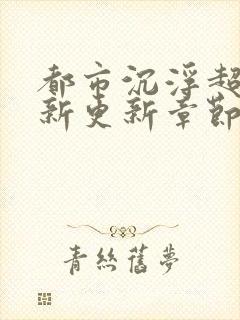 都市沉浮超
新更新章節
青絲舊夢